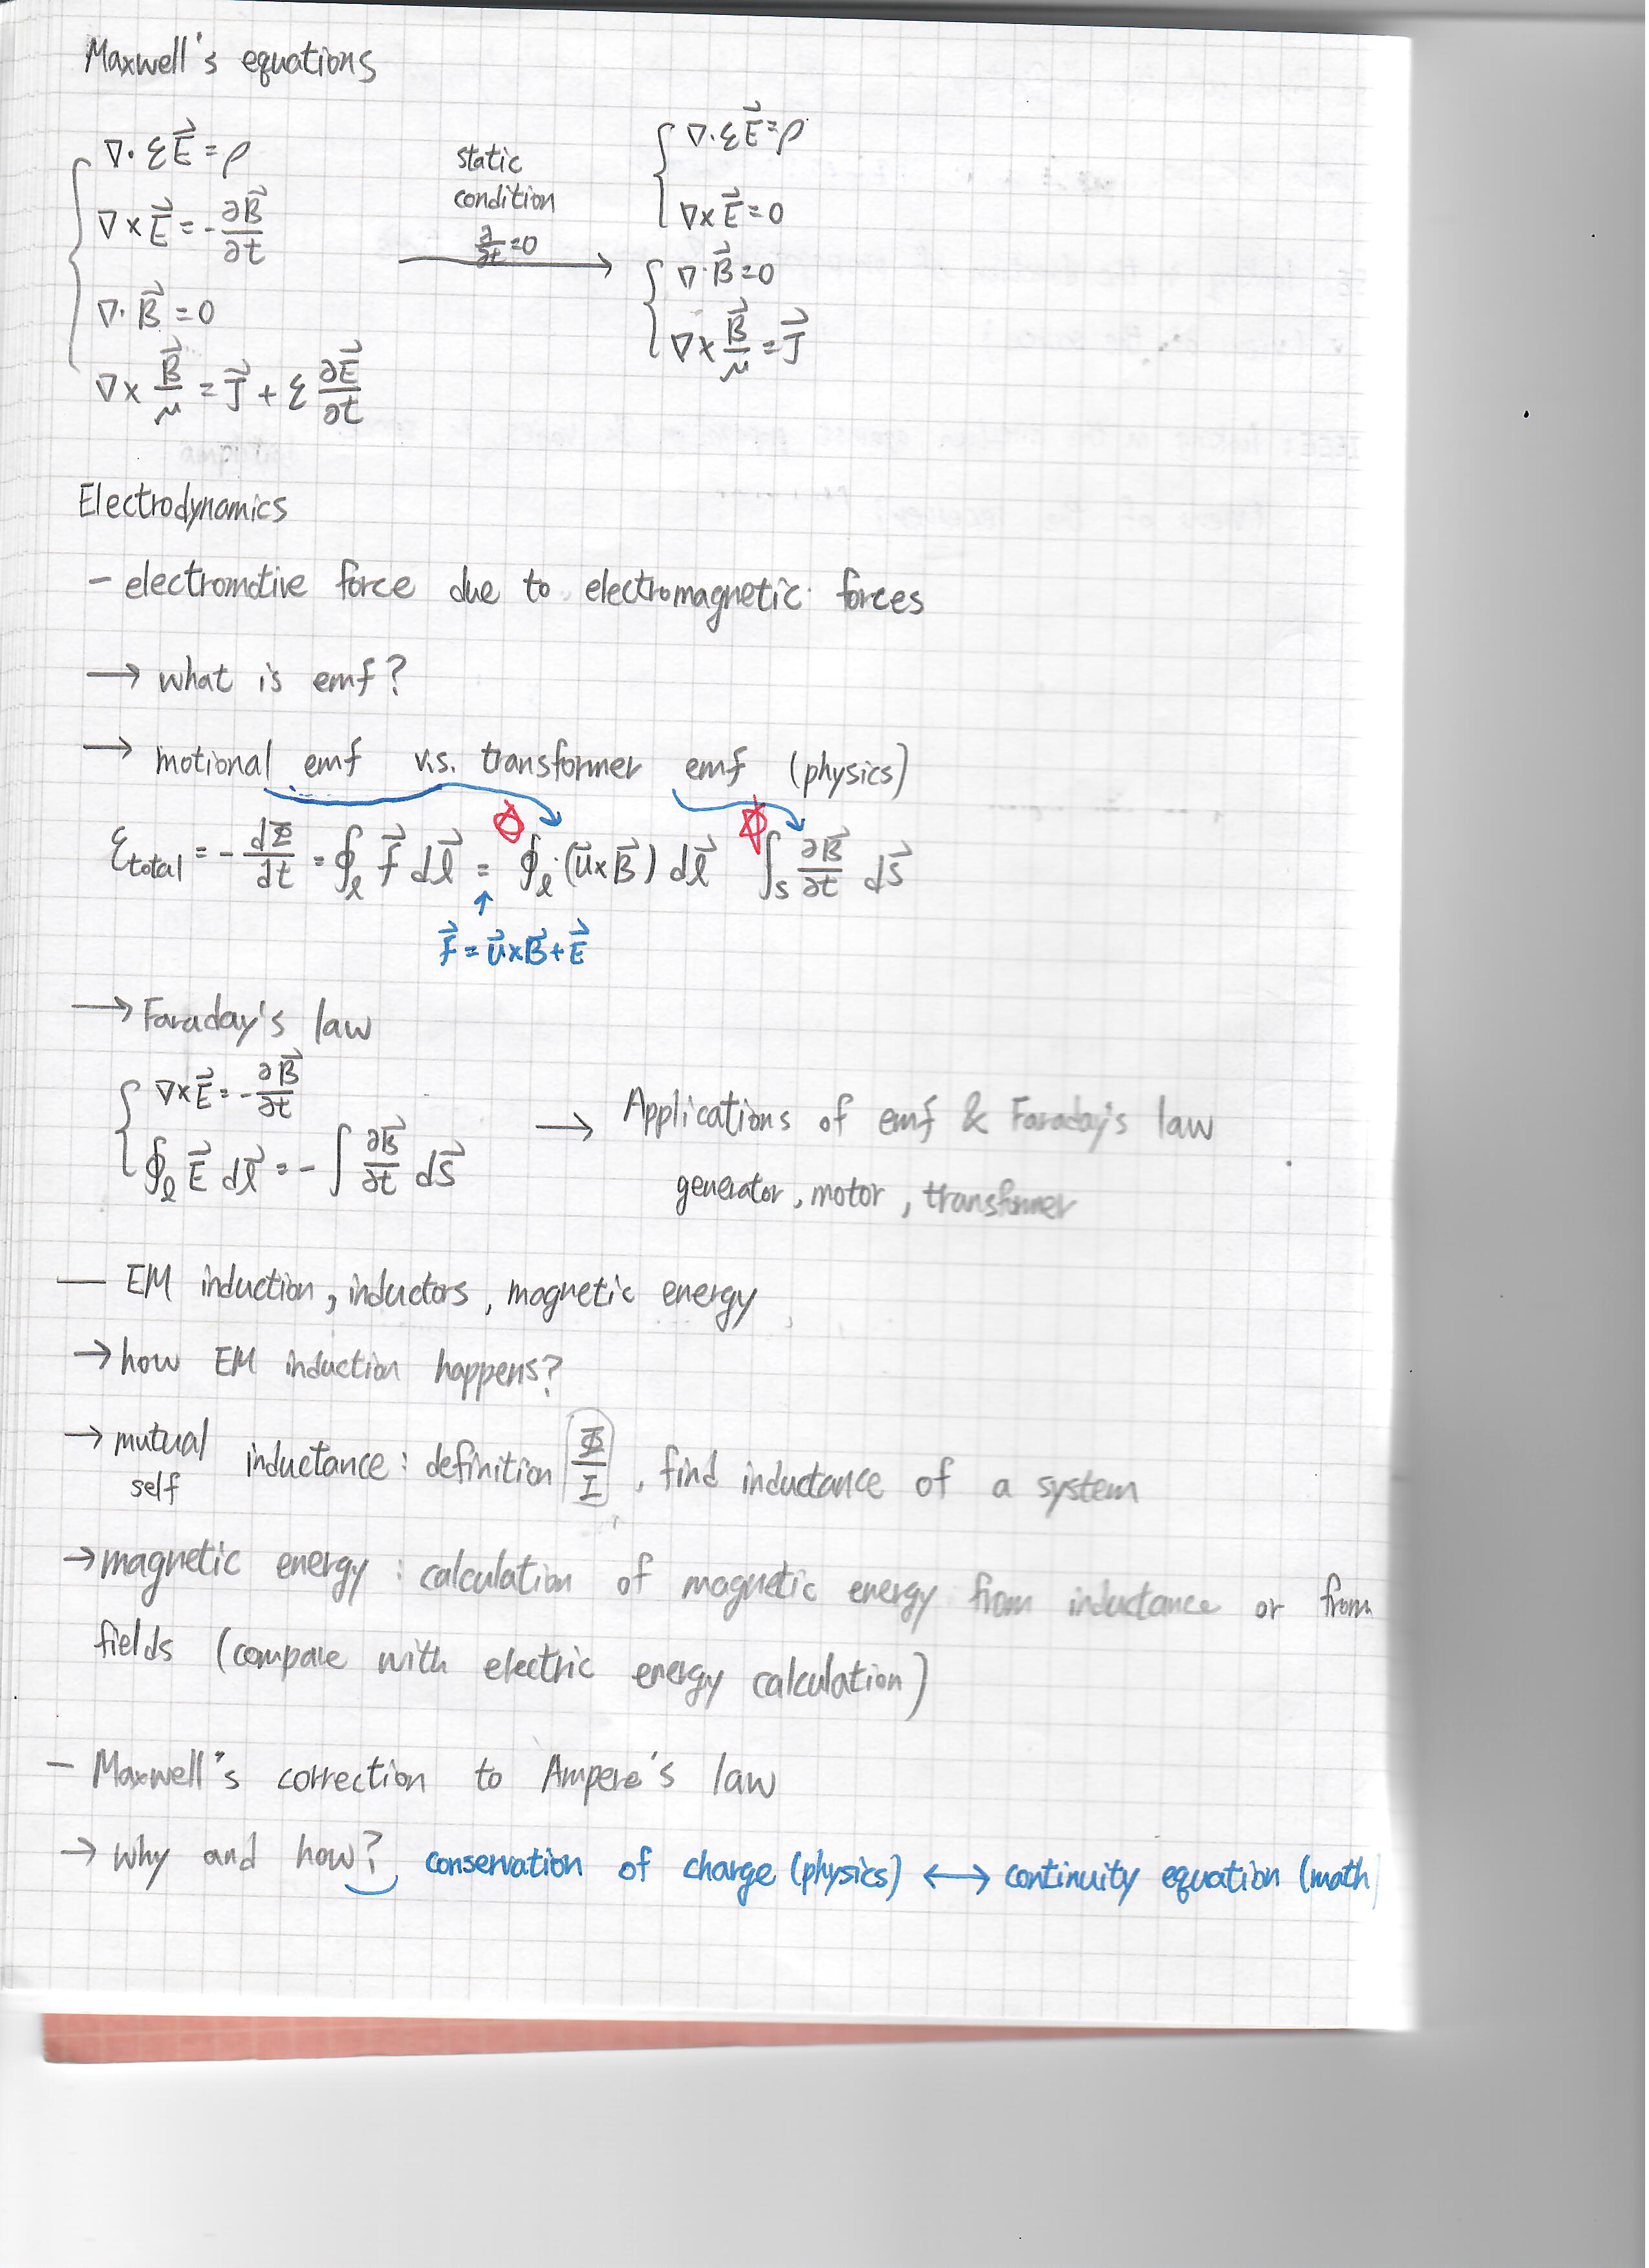 Maxwell's equations
∇·ε\vec{E}=ρ
∇×\vec{E}=-∂\vec{B}/∂t
∇·\vec{B}=0
∇×\vec{B}/μ=\vec{J}+ε∂\vec{E}/∂t
static
condition
∂/∂t=0
∇·ε\vec{E}=ρ
∇×\vec{E}=0
∇·\vec{B}=0
∇×\vec{B}/μ=\vec{J}
Electrodynamics
- electromotive force due to electromagnetic forces
→ what is emf?
→ motional emf v.s. transformer emf (physics)
ℰtotal = -dΦ/dt = ∮ℓ \vec{f} d\vec{l} = ∮ℓ (\vec{u}×\vec{B}) d\vec{l} ∫s ∂\vec{B}/∂t d\vec{s}
↑
\vec{f} = \vec{u}×\vec{B}+\vec{E}
→ Faraday's law
∇×\vec{E}=-∂\vec{B}/∂t
∮ℓ \vec{E} d\vec{l} = -∫ ∂\vec{B}/∂t d\vec{s}
→ Applications of emf & Faraday's law
generator, motor, transformer
— EM induction, inductors, magnetic energy
→ how EM induction happens?
→ mutual
self inductance: definition Φ/I, find inductance of a system
→ magnetic energy: calculation of magnetic energy from inductance or from
fields (compare with electric energy calculation)
- Maxwell's correction to Ampere's law
→ why and how? conservation of charge (physics) ↔ continuity equation (math)